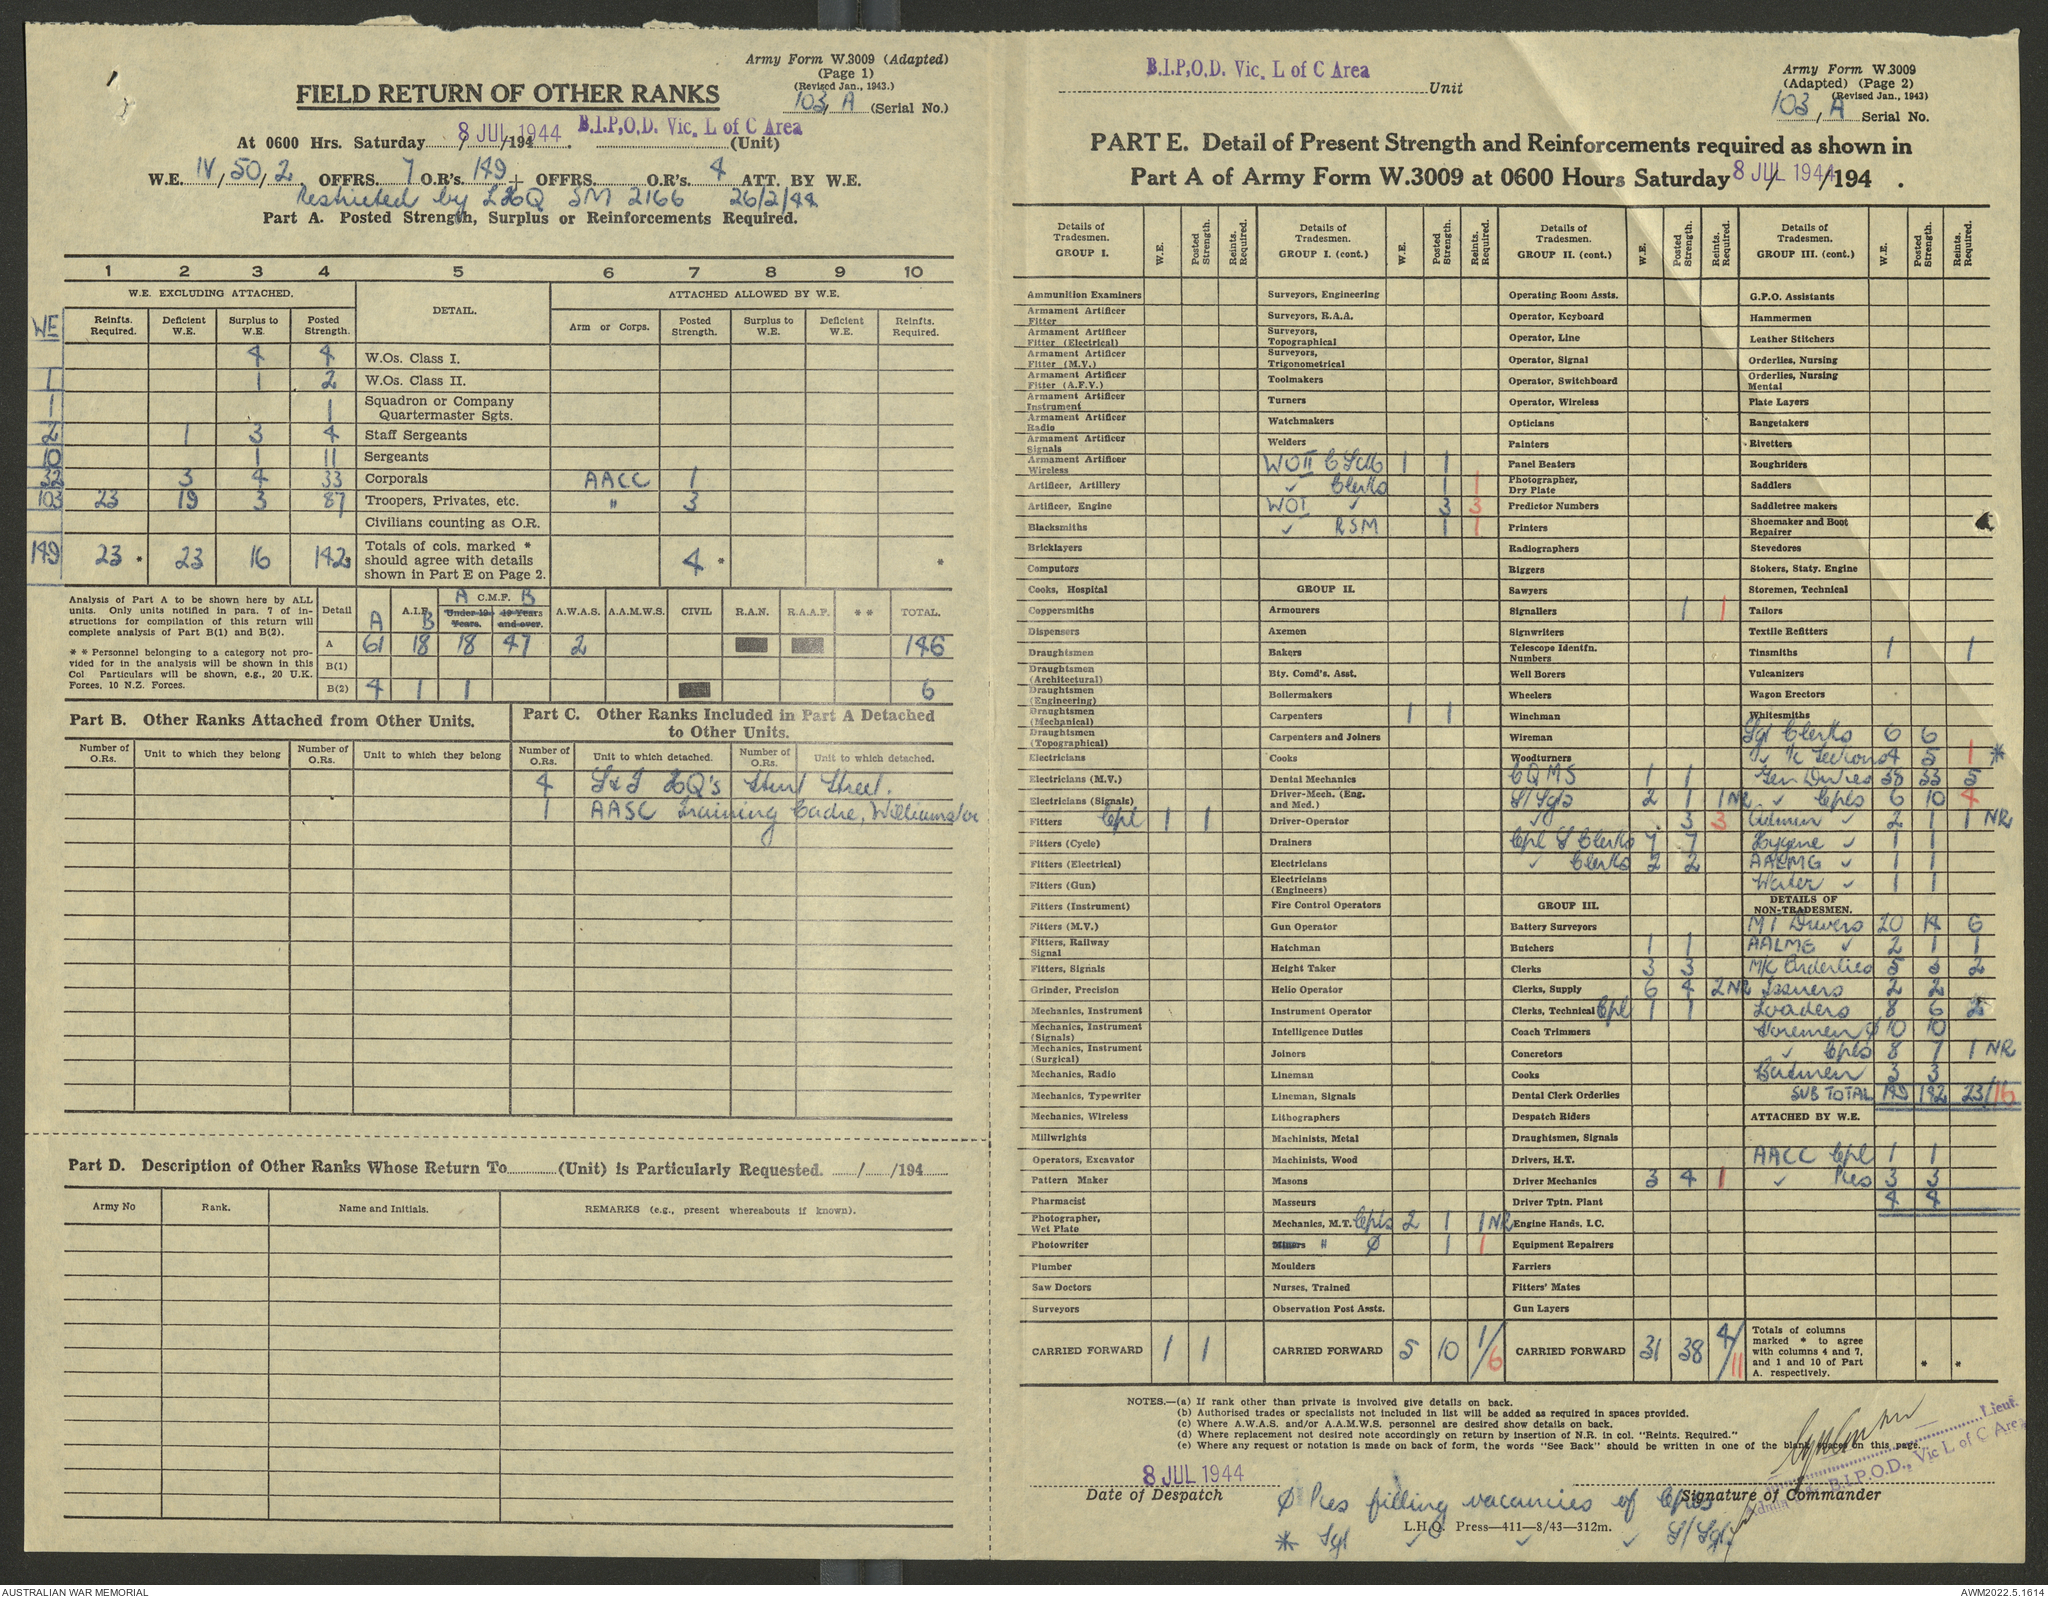 Army Form W.3009 (Adapted)
(Page 1)
(Revised Jan., 1943.)
103, A (Serial No.)
FIELD RETURN OF OTHER RANKS
At 0600 Hrs. Saturday 8 JUL 1944 /194 . B.I.P.O.D. Vic. L of C Area (Unit)
W.E. IV, 50, 2 OFFRS. 7 O.R's. 149 + OFFRS. O.R's. 4 ATT. BY W.E.
Restricted by LHQ SM 2166 26/2/44
Part A. Posted Strength, Surplus or Reinforcements Required.
1 2 3 4 5 6 7 8 9 10
W.E. EXCLUDING ATTACHED. DETAIL. ATTACHED ALLOWED BY W.E.
WE Reinfts. Required. Deficient W.E. Surplus to W.E. Posted Strength. Arm or Corps. Posted Strength. Surplus to W.E. Deficient W.E. Reinfts. Required.
4 4 W.Os. Class I.
1 1 2 W.Os. Class II.
1 1 Squadron or Company Quartermaster Sgts.
2 1 3 4 Staff Sergeants
10 1 11 Sergeants
32 3 4 33 Corporals AACC 1
103 23 19 3 87 Troopers, Privates, etc. " 3
Civilians counting as O.R.
149 23 * 23 16 142 * Totals of cols. marked * should agree with details shown in Part E on Page 2. 4 * *
Analysis of Part A to be shown here by ALL units. Only units notified in para. 7 of instructions for compilation of this return will complete analysis of Part B(1) and B(2).
* * Personnel belonging to a category not provided for in the analysis will be shown in this Col Particulars will be shown, e.g., 20 U.K. Forces, 10 N.Z. Forces.
Detail A A.I.F. B A C.M.F. B Under 19 Years. 19 Years and over. A.W.A.S. A.A.M.W.S. CIVIL R.A.N. R.A.A.F. * * TOTAL.
A 61 18 18 47 2 146
B(1)
B(2) 4 1 1 6
Part B. Other Ranks Attached from Other Units.
Number of O.Rs. Unit to which they belong Number of O.Rs. Unit to which they belong
Part C. Other Ranks Included in Part A Detached to Other Units.
Number of O.Rs. Unit to which detached. Number of O.Rs. Unit to which detached.
4 S & T HQ's Sturt Street.
1 AASC Training Cadre, Williamstown
Part D. Description of Other Ranks Whose Return To (Unit) is Particularly Requested. / /194
Army No Rank. Name and Initials. REMARKS (e.g., present whereabouts if known).
B.I.P.O.D. Vic. L of C Area Unit
Army Form W.3009
(Adapted) (Page 2)
(Revised Jan., 1943)
103, A Serial No.
PART E. Detail of Present Strength and Reinforcements required as shown in
Part A of Army Form W.3009 at 0600 Hours Saturday 8 JUL 1944 /194 .
Details of Tradesmen. GROUP I. W.E. Posted Strength. Reints. Required.
Ammunition Examiners
Armament Artificer Fitter
Armament Artificer Fitter (Electrical)
Armament Artificer Fitter (M.V.)
Armament Artificer Fitter (A.F.V.)
Armament Artificer Instrument
Armament Artificer Radio
Armament Artificer Signals
Armament Artificer Wireless
Artificer, Artillery
Artificer, Engine
Blacksmiths
Bricklayers
Computors
Cooks, Hospital
Coppersmiths
Dispensers
Draughtsmen
Draughtsmen (Architectural)
Draughtsmen (Engineering)
Draughtsmen (Mechanical)
Draughtsmen (Topographical)
Electricians
Electricians (M.V.)
Electricians (Signals)
Fitters Cpl 1 1
Fitters (Cycle)
Fitters (Electrical)
Fitters (Gun)
Fitters (Instrument)
Fitters (M.V.)
Fitters, Railway Signal
Fitters, Signals
Grinder, Precision
Mechanics, Instrument
Mechanics, Instrument (Signals)
Mechanics, Instrument (Surgical)
Mechanics, Radio
Mechanics, Typewriter
Mechanics, Wireless
Millwrights
Operators, Excavator
Pattern Maker
Pharmacist
Photographer, Wet Plate
Photowriter
Plumber
Saw Doctors
Surveyors
CARRIED FORWARD 1 1
Details of Tradesmen. GROUP I. (cont.) W.E. Posted Strength. Reints. Required.
Surveyors, Engineering
Surveyors, R.A.A.
Surveyors, Topographical
Surveyors, Trigonometrical
Toolmakers
Turners
Watchmakers
Welders
WO II 1 1
✓ Clerks 1 1
WO I ✓ 3 3
✓ RSM 1 1
GROUP II.
Armourers
Axemen
Bakers
Bty. Comd's. Asst.
Boilermakers
Carpenters 1 1
Carpenters and Joiners
Cooks
Dental Mechanics
Driver-Mech. (Eng. and Med.)
Driver-Operator
Drainers
Electricians
Electricians (Engineers)
Fire Control Operators
Gun Operator
Hatchman
Height Taker
Helio Operator
Instrument Operator
Intelligence Duties
Joiners
Lineman
Lineman, Signals
Lithographers
Machinists, Metal
Machinists, Wood
Masons
Masseurs
Mechanics, M.T. Cpls 2 1 1 NR
Miners " Ø 1 1
Moulders
Nurses, Trained
Observation Post Assts.
CARRIED FORWARD 5 10 1/6
Details of Tradesmen. GROUP II. (cont.) W.E. Posted Strength. Reints. Required.
Operating Room Assts.
Operator, Keyboard
Operator, Line
Operator, Signal
Operator, Switchboard
Operator, Wireless
Opticians
Painters
Panel Beaters
Photographer, Dry Plate
Predictor Numbers
Printers
Radiographers
Riggers
Sawyers
Signallers 1 1
Signwriters
Telescope Identfn. Numbers
Well Borers
Wheelers
Winchman
Wireman
Woodturners
CQMS 1 1
S/Sgts 2 1 1 NR
✓ 3 3
Cpl S Clerks 7 7
✓ Clerks 2 2
GROUP III.
Battery Surveyors
Butchers 1 1
Clerks 3 3
Clerks, Supply 6 4 2 NR
Clerks, Technical Cpl 1 1
Coach Trimmers
Concretors
Cooks
Dental Clerk Orderlies
Despatch Riders
Draughtsmen, Signals
Drivers, H.T.
Driver Mechanics 3 4 1
Driver Tptn. Plant
Engine Hands, I.C.
Equipment Repairers
Farriers
Fitters' Mates
Gun Layers
CARRIED FORWARD 31 38 4/11
Details of Tradesmen. GROUP III. (cont.) W.E. Posted Strength. Reints Required.
G.P.O. Assistants
Hammermen
Leather Stitchers
Orderlies, Nursing
Orderlies, Nursing Mental
Plate Layers
Rangetakers
Rivetters
Roughriders
Saddlers
Saddletree makers
Shoemaker and Boot Repairer
Stevedores
Stokers, Staty. Engine
Storemen, Technical
Tailors
Textile Refitters
Tinsmiths 1 1
Vulcanizers
Wagon Erectors
Whitesmiths
Sgt Clerks 6 6
✓ I/c Sections 4 5 1 *
Gen Duties 38 33 5
✓ Cpls 6 10 4
Admin ✓ 2 1 1 NR
Hygene ✓ 1 1
AALMG ✓ 1 1
Water ✓ 1 1
DETAILS OF NON-TRADESMEN.
MT Drivers 20 14 6
AALMG ✓ 2 1 1
M/C Orderlies 5 3 2
Issuers 2 2
Loaders 8 6 2
Storemen Ø 10 10
✓ Cpls 8 7 1 NR
Batmen 3 3
SUB TOTAL 149 142 23/16
ATTACHED BY W.E.
AACC Cpl 1 1
✓ Ptes 3 3
4 4
Totals of columns marked * to agree with columns 4 and 7, and 1 and 10 of Part A. respectively. * *
NOTES.—(a) If rank other than private is involved give details on back.
(b) Authorised trades or specialists not included in list will be added as required in spaces provided.
(c) Where A.W.A.S. and/or A.A.M.W.S. personnel are desired show details on back.
(d) Where replacement not desired note accordingly on return by insertion of N.R. in col. "Reints. Required."
(e) Where any request or notation is made on back of form, the words "See Back" should be written in one of the blank spaces on this page.
8 JUL 1944
Date of Despatch
Lieut.
B.I.P.O.D., Vic L of C Area
Signature of Commander
Ø Ptes filling vacancies of Cpls
L.H.Q. Press—411—8/43—312m.
* Sgt ✓ ✓ ✓ S/Sgt
AUSTRALIAN WAR MEMORIAL
AWM2022.5.1614